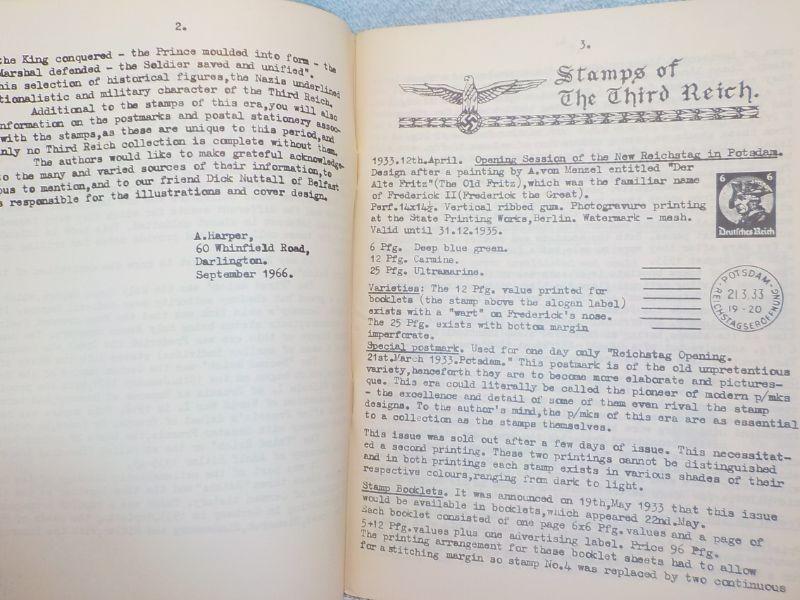 2.
the King conquered - the Prince moulded into form - the
Marshal defended - the Soldier saved and unified".
his selection of historical figures,the Nazis underlined
tionalistic and military character of the Third Reich.
Additional to the stamps of this era,you will also
nformation on the postmarks and postal stationery assoc-
with the stamps,as these are unique to this period,and
nly no Third Reich collection is complete without them.
The authors would like to make grateful acknowledge-
to the many and varied sources of their information,to
ous to mention,and to our friend Dick Nuttall of Belfast
s responsible for the illustrations and cover design.
A.Harper,
60 Whinfield Road,
Darlington.
September 1966.
3.
Stamps of
The Third Reich.
1933.12th.April. Opening Session of the New Reichstag in Potsdam.
Design after a painting by A.von Menzel entitled "Der
Alte Fritz"(The Old Fritz),which was the familiar name
of Frederick II(Frederick the Great).
Perf.14x14½. Vertical ribbed gum. Photogravure printing
at the State Printing Works,Berlin. Watermark - mesh.
Valid until 31.12.1935.
6 6
Deutsches Reich
6 Pfg. Deep blue green.
12 Pfg. Carmine.
25 Pfg. Ultramarine.
POTSDAM
21.3.33
19-20
REICHSTAGSERÖFFNUNG
Varieties: The 12 Pfg. value printed for
booklets (the stamp above the slogan label)
exists with a "wart" on Frederick's nose.
The 25 Pfg. exists with bottom margin
imperforate.
Special postmark. Used for one day only "Reichstag Opening.
21st.March 1933.Potsdam." This postmark is of the old unpretentious
variety,henceforth they are to become more elaborate and pictures-
que. This era could literally be called the pioneer of modern p/mks
- the excellence and detail of some of them even rival the stamp
designs. To the author's mind,the p/mks of this era are as essential
to a collection as the stamps themselves.
This issue was sold out after a few days of issue. This necessitat-
ed a second printing. These two printings cannot be distinguished
and in both printings each stamp exists in various shades of their
respective colours,ranging from dark to light.
Stamp Booklets. It was announced on 19th,May 1933 that this issue
would be available in booklets,which appeared 22nd.May.
Each booklet consisted of one page 6x6 Pfg.values and a page of
5+12 Pfg.values plus one advertising label. Price 96 Pfg.
The printing arrangement for these booklet sheets had to allow
for a stitching margin so stamp No.4 was replaced by two continuous